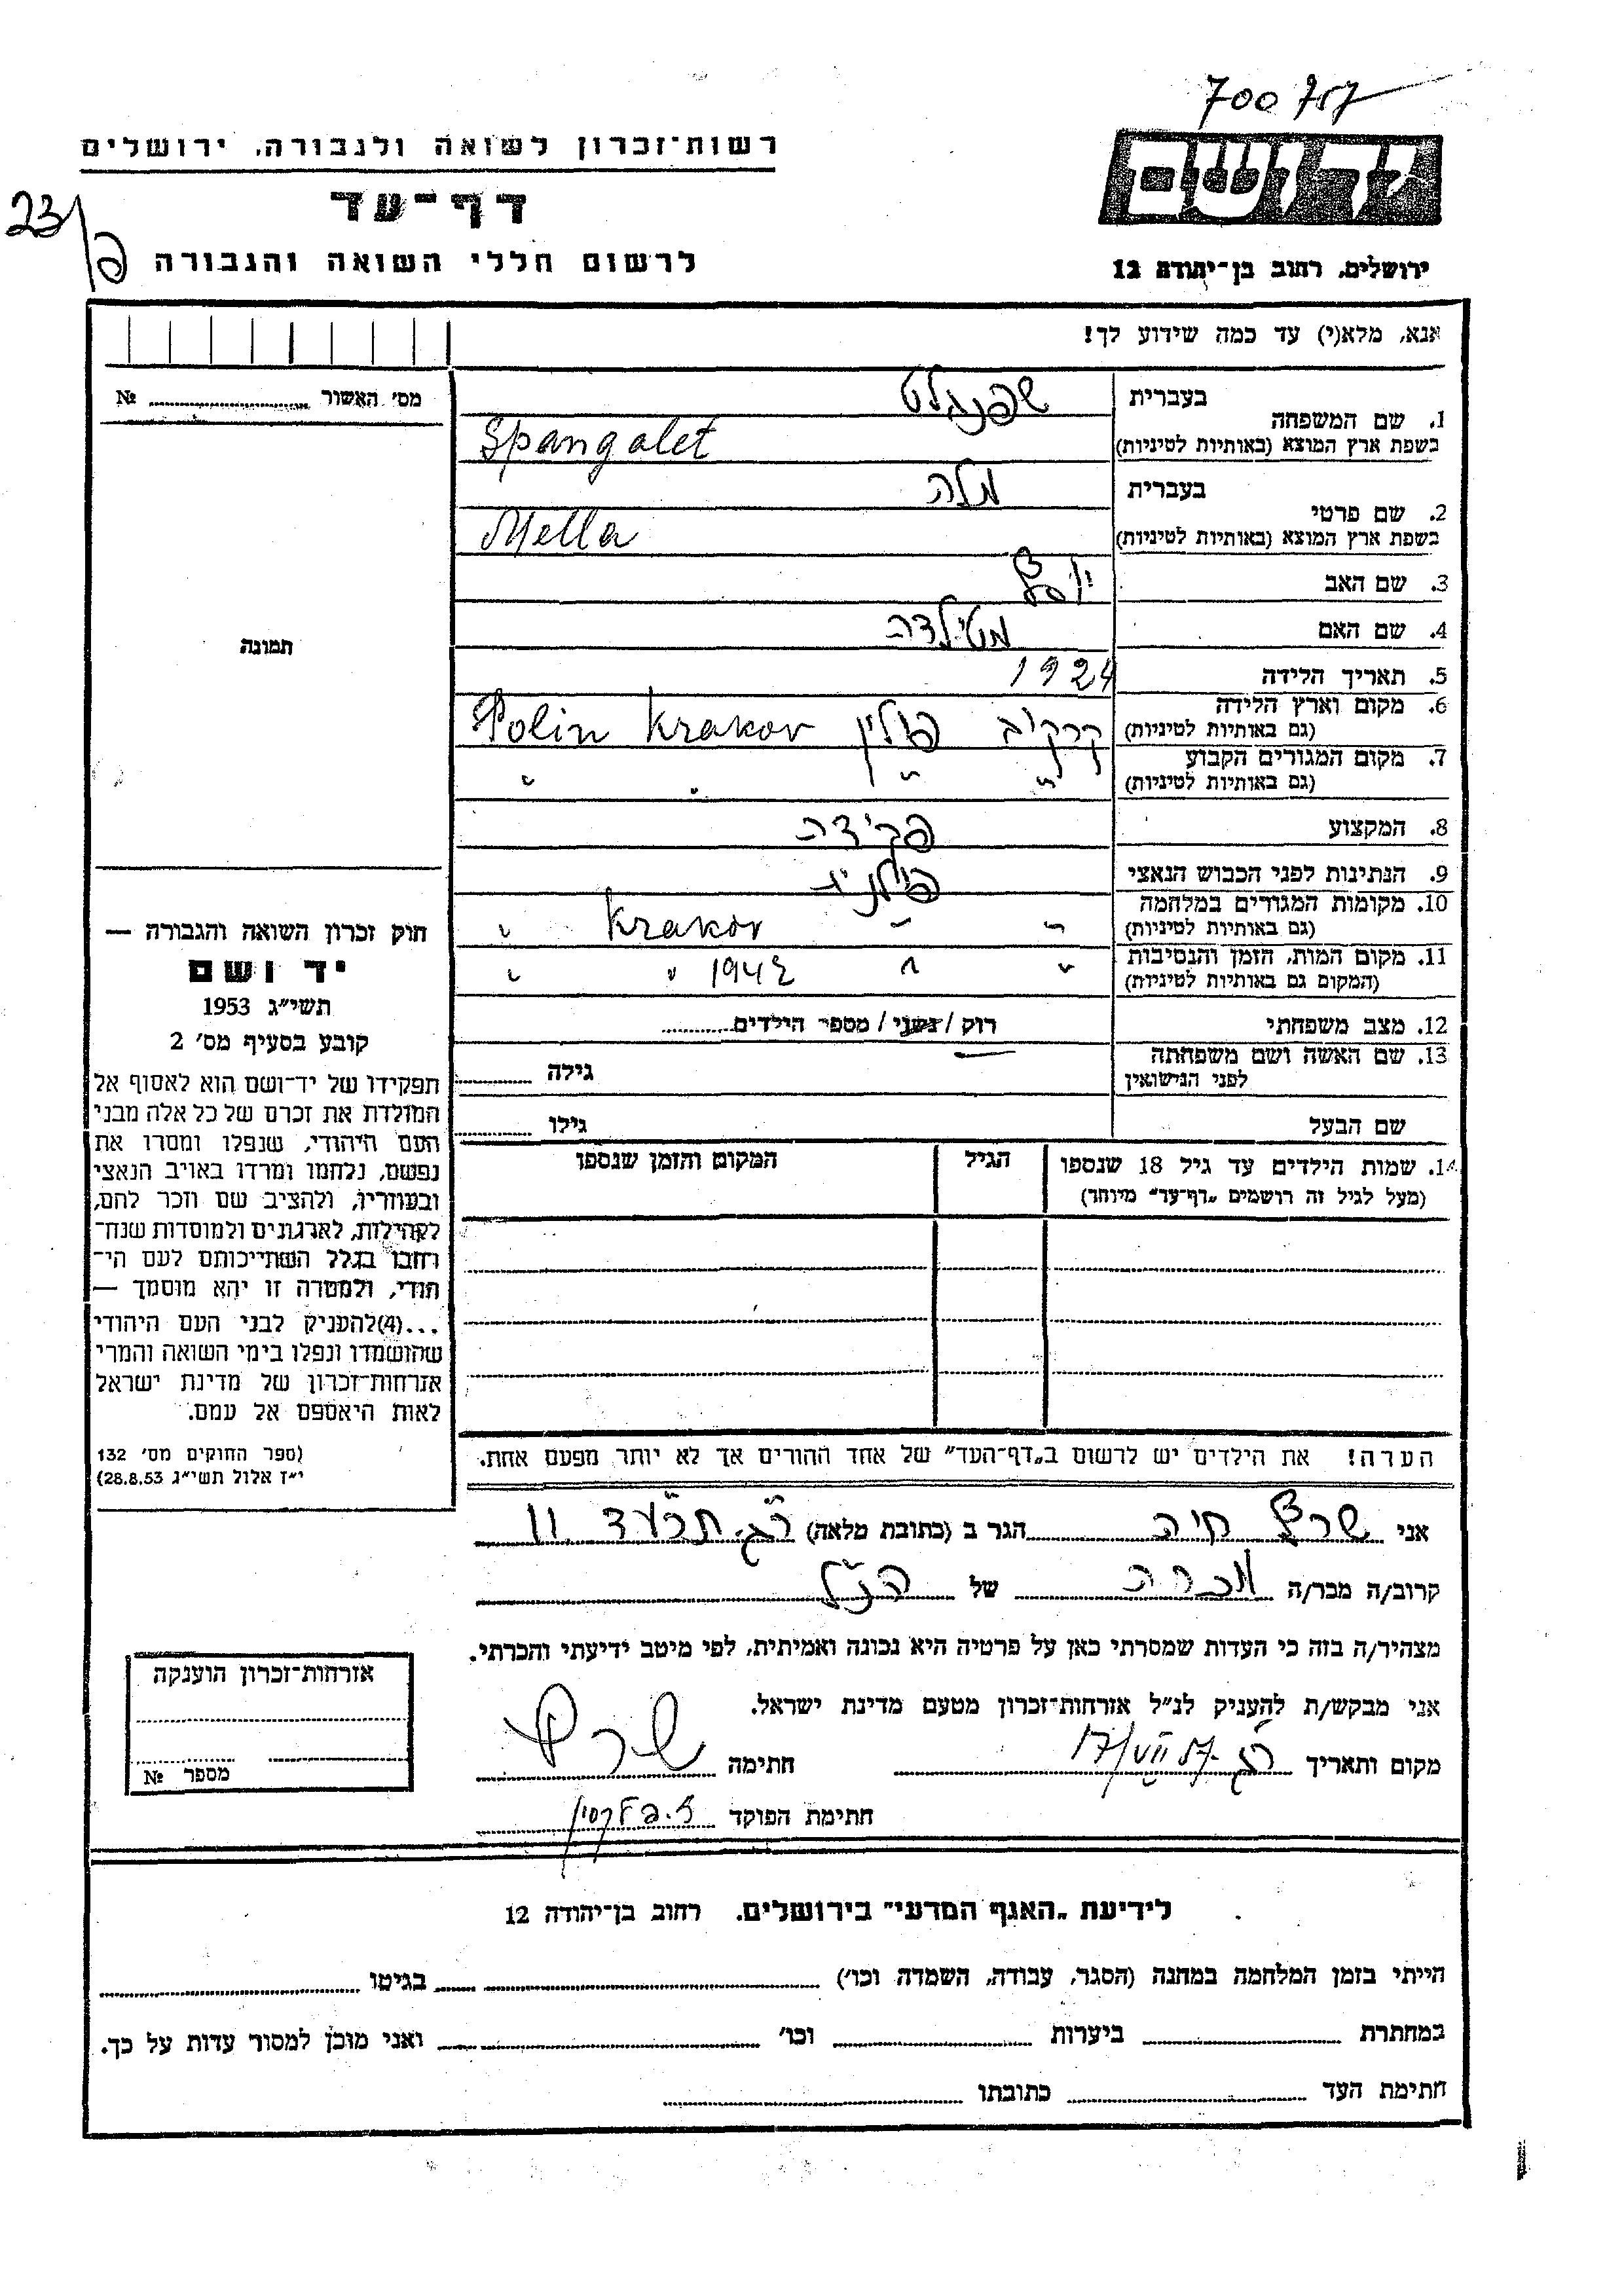 700 717
יד ושם
רשות־זכרון לשואה ולגבורה, ירושלים
דף־עד
לרשום חללי השואה והגבורה
23/פ
ירושלים, רחוב בן־יהודה 12
אנא, מלא(י) עד כמה שידוע לך!
מס׳ האשור № 
1. שם המשפחה בעברית שפנגלט
בשפת ארץ המוצא (באותיות לטיניות) Spangalet
2. שם פרטי בעברית מלה
בשפת ארץ המוצא (באותיות לטיניות) Mella
3. שם האב יוסף
4. שם האם מטילדה
5. תאריך הלידה 1924
6. מקום וארץ הלידה
(גם באותיות לטיניות) קרקוב פולין Krakov Polin
7. מקום המגורים הקבוע
(גם באותיות לטיניות) " " " "
8. המקצוע פקידה
9. הנתינות לפני הכבוש הנאצי פולנית
10. מקומות המגורים במלחמה
(גם באותיות לטיניות) " " Krakov "
11. מקום המות, הזמן והנסיבות
(המקום גם באותיות לטיניות) " " 1942 " "
12. מצב משפחתי רוק / נשוי / מספר הילדים
13. שם האשה ושם משפחתה
לפני הנישואין גילה
שם הבעל גילו
14. שמות הילדים עד גיל 18 שנספו הגיל המקום והזמן שנספו
(מעל לגיל זה רושמים „דף־עד״ מיוחד)
תמונה
חוק זכרון השואה והגבורה —
יד ושם
תשי״ג 1953
קובע בסעיף מס׳ 2
תפקידו של יד־ושם הוא לאסוף אל
המולדת את זכרם של כל אלה מבני
העם היהודי, שנפלו ומסרו את
נפשם, נלחמו ומרדו באויב הנאצי
ובעוזריו, ולהציב שם וזכר להם,
לקהילות, לארגונים ולמוסדות שנח־
רחבו בגלל השתייכותם לעם הי־
הודי, ולמטרה זו יהא מוסמך —
...(4)להעניק לבני העם היהודי
שהושמדו ונפלו בימי השואה והמרי
אזרחות־זכרון של מדינת ישראל
לאות היאספם אל עמם.
(ספר החוקים מס׳ 132
י״ז אלול תשי״ג 28.8.53)
הערה! את הילדים יש לרשום ב„דף־העד״ של אחד ההורים אך לא יותר מפעם אחת.
אני שרף חיה הגר ב (כתובת מלאה) ר״ג תרע״ד 11
קרוב/ה מכר/ה מכרה של הנ״ל
מצהיר/ה בזה כי העדות שמסרתי כאן על פרטיה היא נכונה ואמיתית, לפי מיטב ידיעתי והכרתי.
אני מבקש/ת להעניק לנ״ל אזרחות־זכרון מטעם מדינת ישראל.
מקום ותאריך ר״ג 17/VII 57 חתימה שרף
חתימת הפוקד
אזרחות־זכרון הוענקה
מספר №
לידיעת „האגף המדעי״ בירושלים, רחוב בן־יהודה 12
הייתי בזמן המלחמה במחנה (הסגר, עבודה, השמדה וכו׳) בגיטו
במחתרת ביערות וכו׳ ואני מוכן למסור עדות על כך.
חתימת העד כתובתו